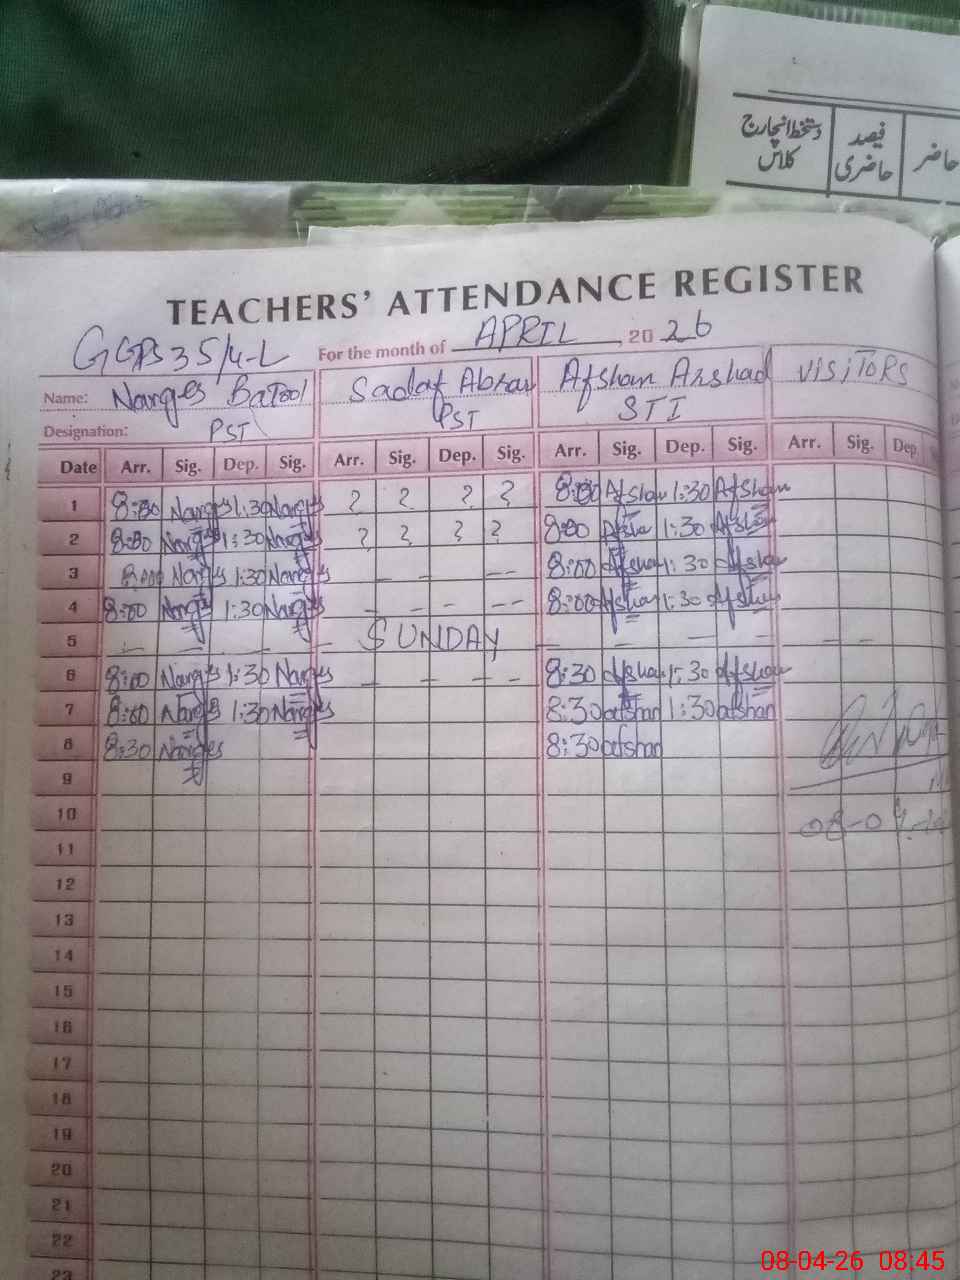 دستخط انچارج کلاس
فیصد حاضری
حاضر
TEACHERS' ATTENDANCE REGISTER
GGPS 35/4-L For the month of APRIL, 2026
Name: Narges Batool Sadaf Abrar Afshan Arshad VISITORS
Designation: PST PST STI
Date Arr. Sig. Dep. Sig. Arr. Sig. Dep. Sig. Arr. Sig. Dep. Sig. Arr. Sig. Dep.
1 8:00 Narges 1:30 Narges ? ? ? ? 8:00 Afshan 1:30 Afshan
2 8:00 Narges 1:30 Narges ? ? ? ? 8:00 Afshan 1:30 Afshan
3 8:00 Narges 1:30 Narges – – – – 8:00 Afshan 1:30 Afshan
4 8:00 Narges 1:30 Narges – – – – 8:00 Afshan 1:30 Afshan
5 – – – – – SUNDAY – – – – – – –
6 8:00 Narges 1:30 Narges – – – – 8:30 Afshan 1:30 Afshan
7 8:00 Narges 1:30 Narges 8:30 afshan 1:30 afshan
8 8:30 Narges 8:30 afshan
9
10 08-04-
11
12
13
14
15
16
17
18
19
20
21
22
23
08-04-26 08:45